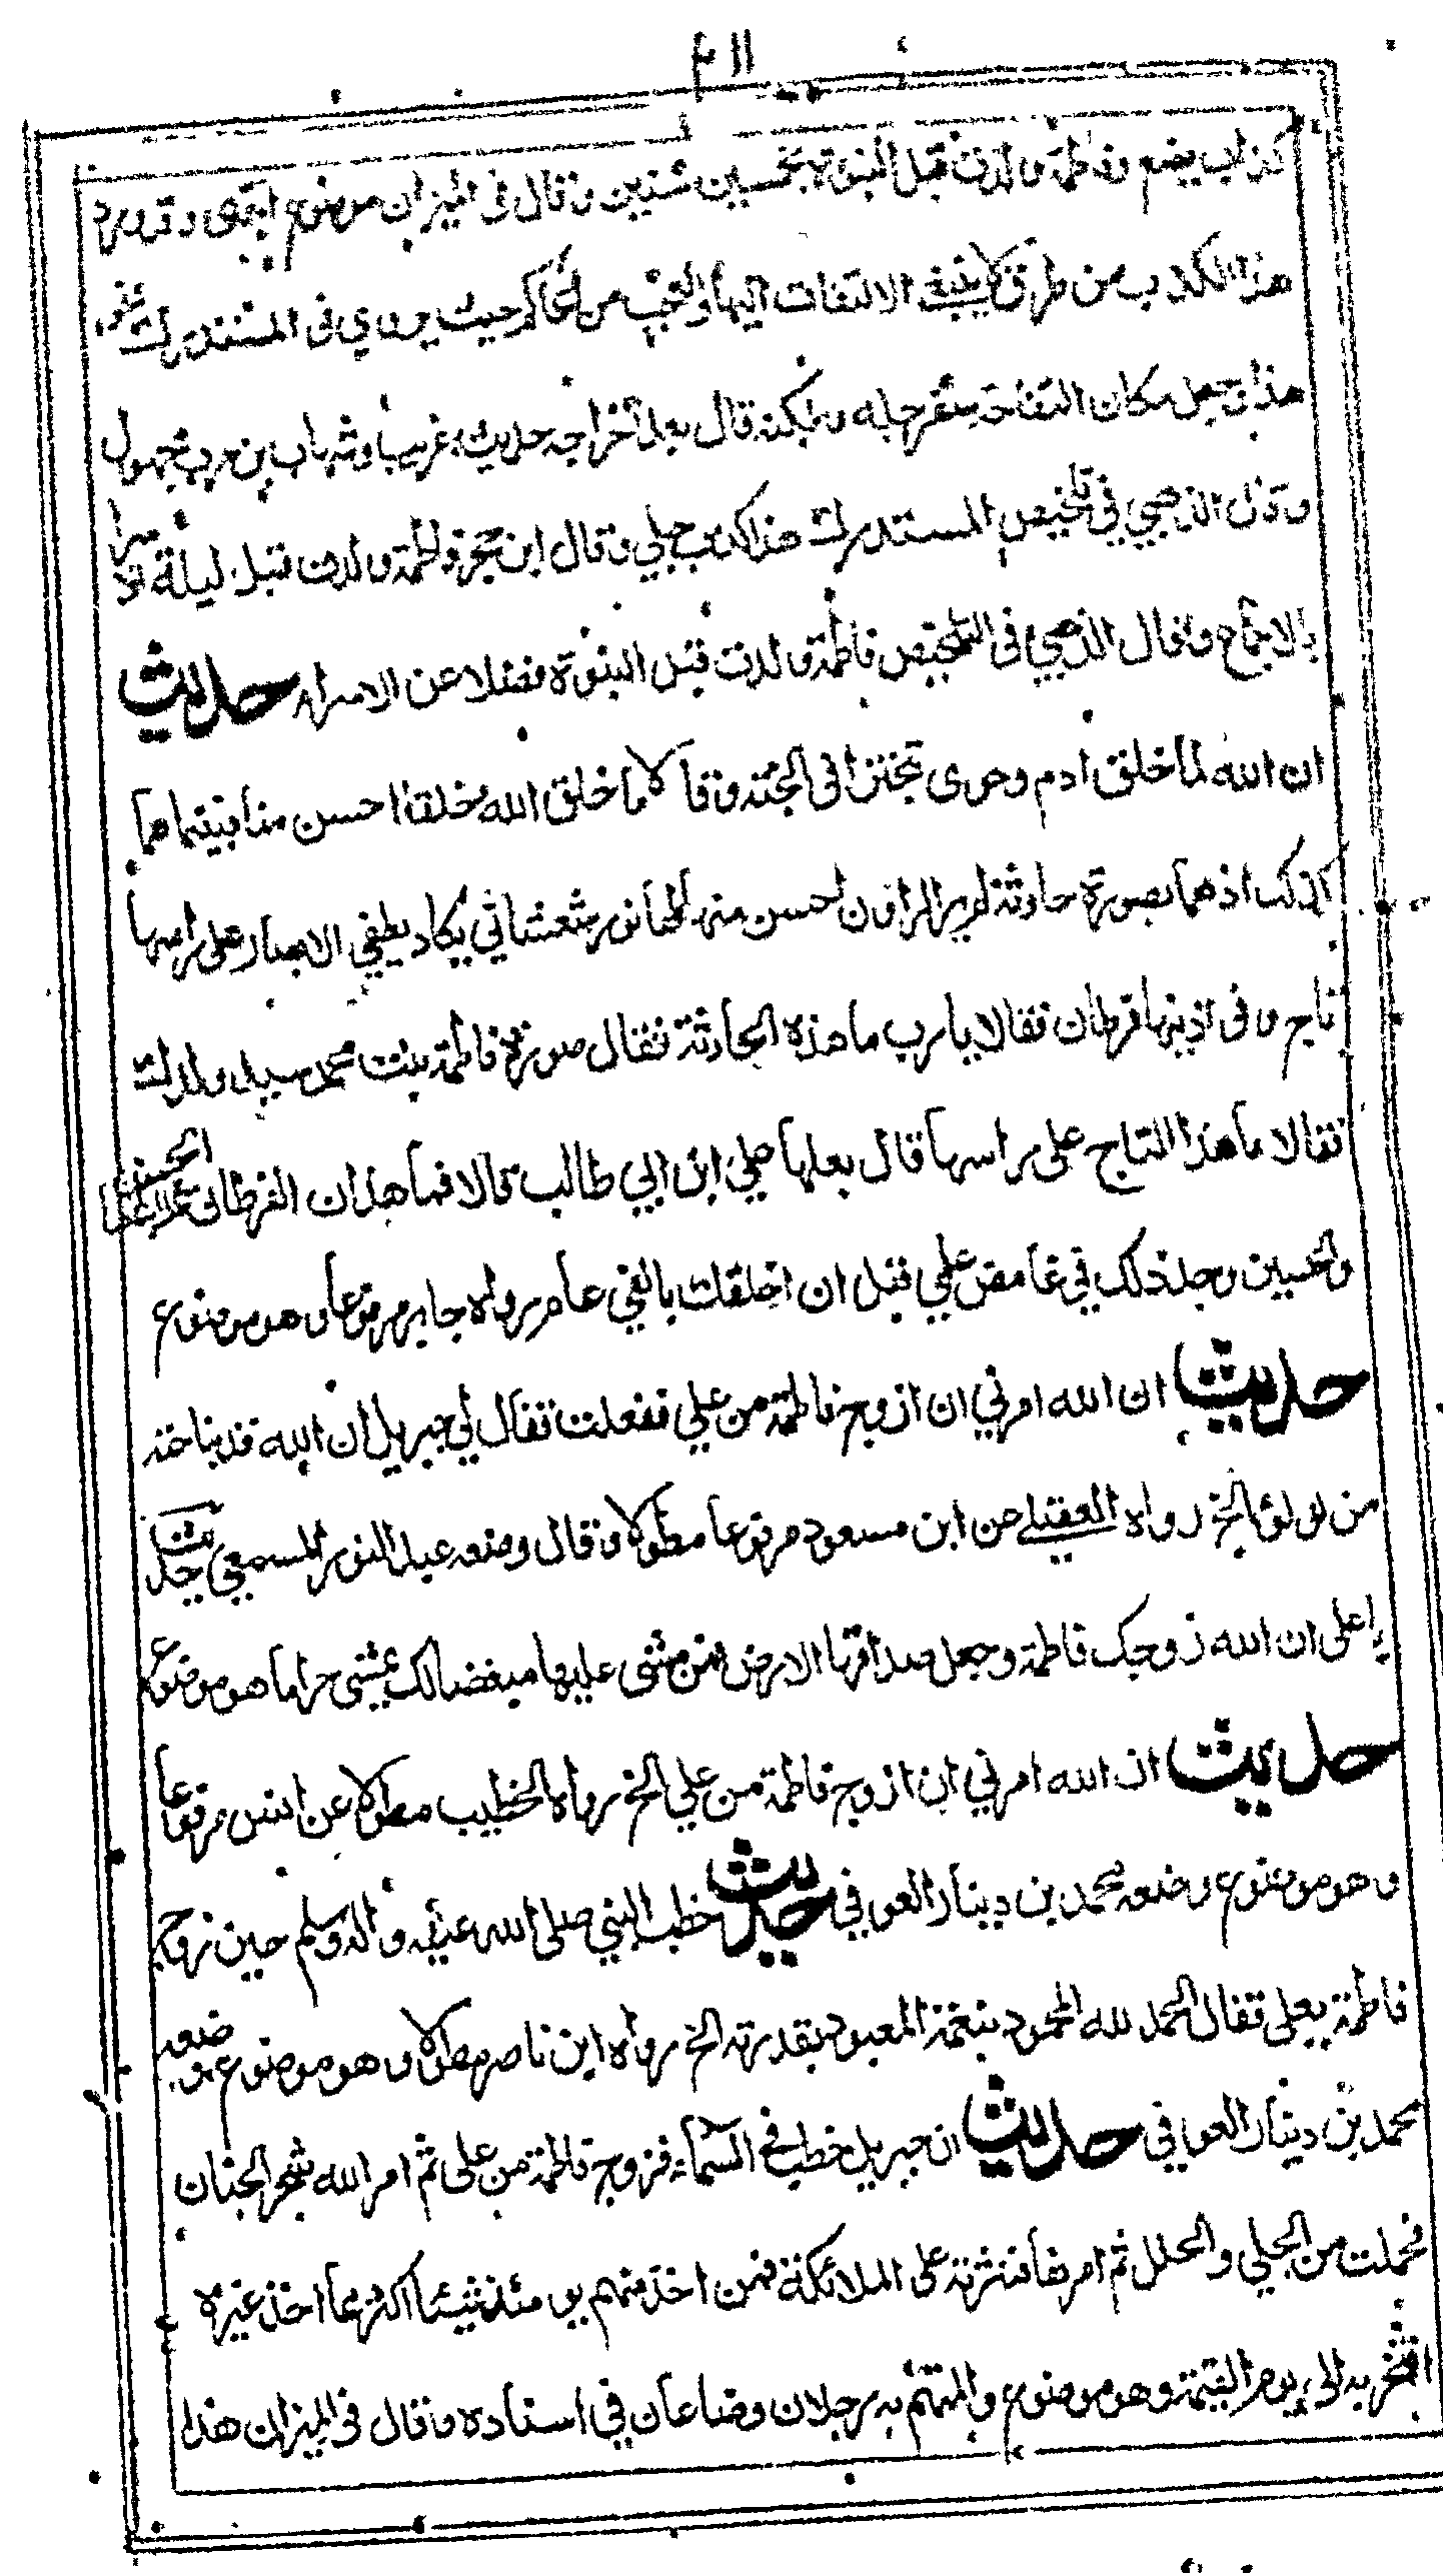 ٢١١
كذاب يضع وفاطمة ولدت قبل النبوة بخمس سنين وقال فى الميزان موضوع انتهى وقد روى
هذا الكذب من طرق لا ينبغي الالتفات اليها والتعجب من الحاكم حيث يروي فى المستدرك نحو
هذا وجعل مكان التفاحة سفرجله ولكنه قال بعد اخراجه حديث غريب وشهاب بن حرب مجهول
وقال الذهبي في تلخيص المستدرك هذا كذب جلي وقال ابن حجر فاطمة ولدت قبل ليلة الاسرا
بالاجماع وقال الذهبي فى التلخيص فاطمة ولدت قبل النبوة فضلا عن الاسراء حديث
ان الله لما خلق ادم وحوى تبخترا فى الجنة وقالا ما خلق الله خلقا احسن منا فبينما هما
كذلك اذ هما بصورة حادثة لم ير الراؤن احسن منها لها نور شعشاني يكاد يطفي الابصار على راسها
تاج وفى اذنيها قرطان فقالا يا رب ما هذه الحادثة فقال صورة فاطمة بنت محمد سيد ولدك
فقالا ما هذا التاج على راسها قال بعلها علي ابن ابي طالب قالا فما هذان القرطان قال ابناها الحسن
والحسين وجد ذلك في غامض علمي قبل ان اخلقك بالفي عام رواه جابر مرفوعا وهو موضوع
حديث ان الله امرني ان ازوج فاطمة من علي ففعلت فقال لي جبريل ان الله قد بنا جنة
من لولؤ الخ رواه العقيلي عن ابن مسعود مرفوعا مطولا وقال وضعه عبد النور المسمعي حديث
يا على ان الله زوجك فاطمة وجعل صداقها الارض فمن مشى عليها مبغضا لك يمشى حراما هو موضوع
حديث ان الله امرني ان ازوج فاطمة من علي الخ رواه الخطيب مطولا عن انس مرفوعا
وهو موضوع وضعه محمد بن دينار العوفي حديث خطب النبي صلى الله عليه واله وسلم حين زوج
فاطمة بعلى فقال الحمد لله المحمود بنعمة المعبود بقدرته الخ رواه ابن ناصر مطولا وهو موضوع وضعه
محمد بن دينار العوفي حديث ان جبريل خطب في السماء فزوج فاطمة من على ثم امر الله شجر الجنان
فحملت من الحلي والحلل ثم امرها فنثرته على الملائكة فمن اخذ منهم يومئذ شيئا اكثر مما اخذ غيره
افتخر به الى يوم القيمة وهو موضوع والمتهم به رجلان وضاعان في اسناده وقال فى الميزان هذا